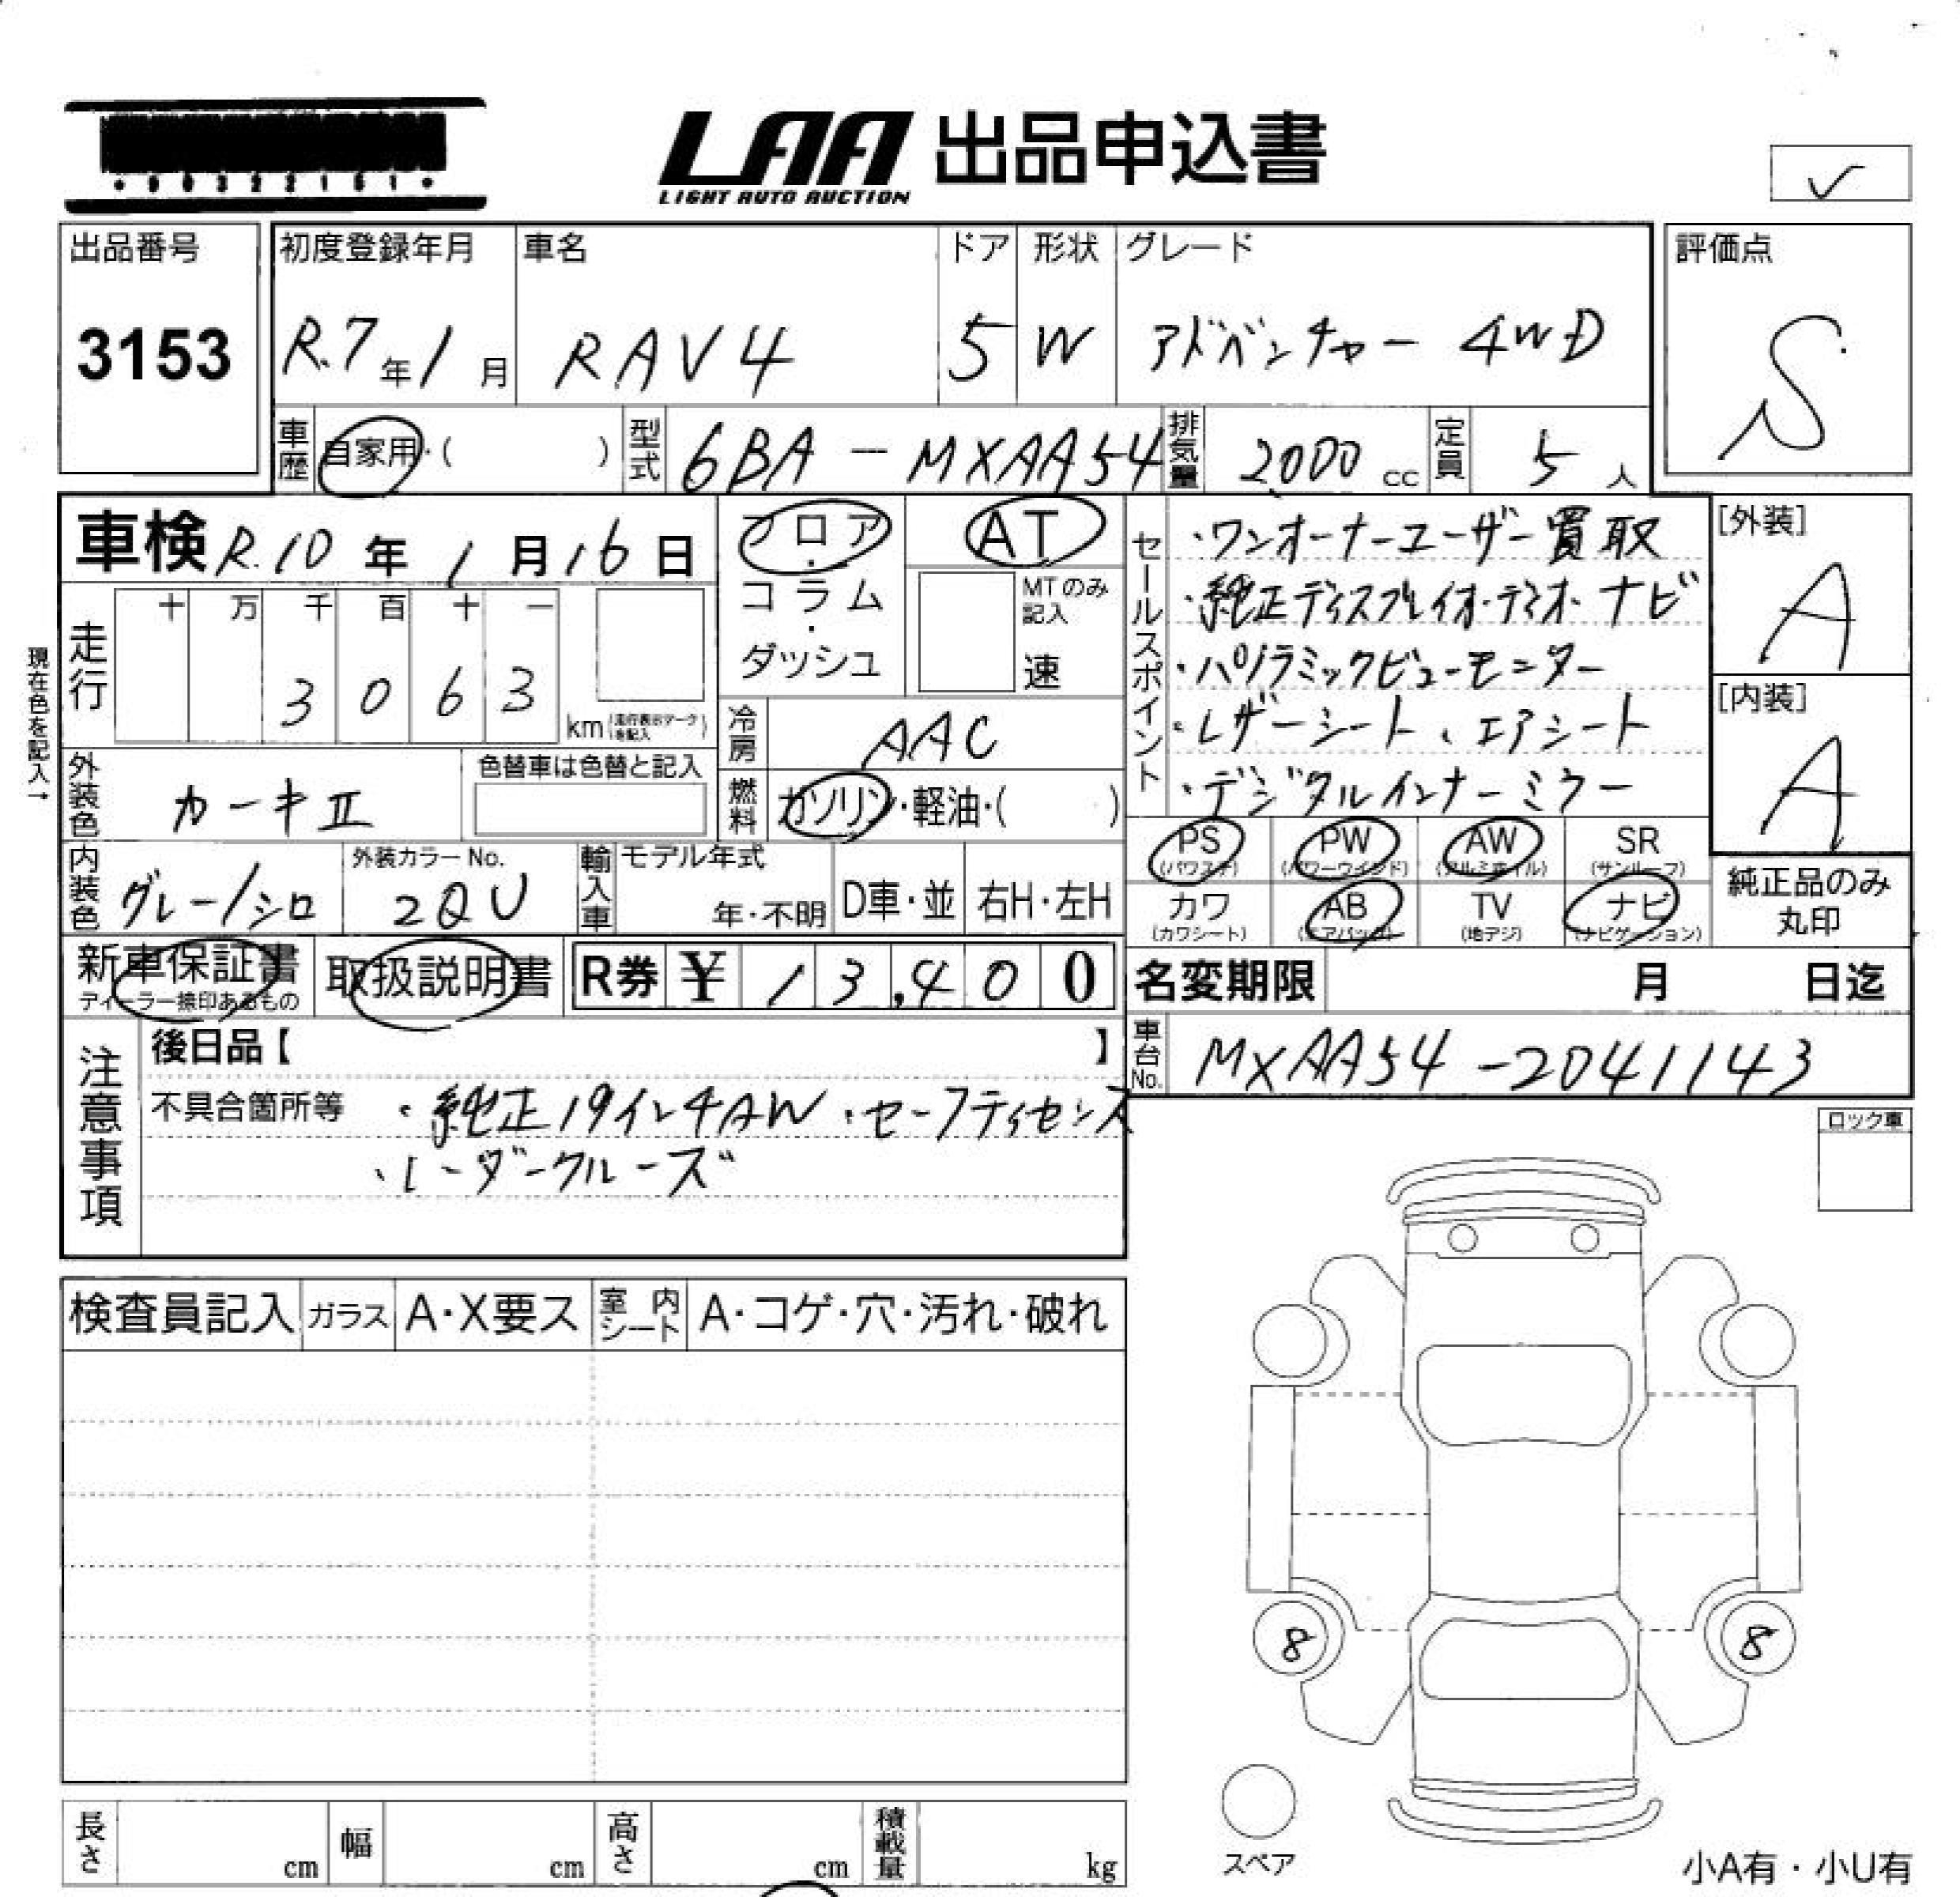 LAA 出品申込書
LIGHT AUTO AUCTION
✓
出品番号
3153
初度登録年月
R.7年1月
車名
RAV4
ドア
5
形状
W
グレード
アドベンチャー 4WD
評価点
S
車歴
自家用・( )
型式
6BA-MXAA54
排気量
2000 cc
定員
5 人
車検 R.10年1月16日
フロア・コラム・ダッシュ
AT
MTのみ記入
速
セールスポイント
・ワンオーナーユーザー買取
・純正ディスプレイオーディオ・ナビ
・パノラミックビューモニター
・レザーシート、エアシート
・デジタルインナーミラー
[外装]
A
[内装]
A
現在色を記入→
走行
十 万 千 百 十 一
3 0 6 3
km(走行表示マークを記入)
冷房
AAC
外装色
カーキⅡ
色替車は色替と記入
燃料
ガソリン・軽油・( )
PS (パワステ)
PW (パワーウインド)
AW (アルミホイル)
SR (サンルーフ)
カワ (カワシート)
AB (エアバッグ)
TV (地デジ)
ナビ (ナビゲーション)
純正品のみ
丸印
内装色
グレー/シロ
外装カラーNo.
2QU
輸入車
モデル年式
年・不明
D車・並
右H・左H
新車保証書
ディーラー捺印あるもの
取扱説明書
R券 ¥ 13,400
名変期限 月 日迄
注意事項
後日品【 】
不具合箇所等 ・純正19インチAW ・セーフティセンス
・レーダークルーズ
車台No.
MXAA54-2041143
ロック車
検査員記入
ガラス
A・X要ス
室内シート
A・コゲ・穴・汚れ・破れ
8
8
スペア
長さ cm
幅 cm
高さ cm
積載量 kg
小A有・小U有